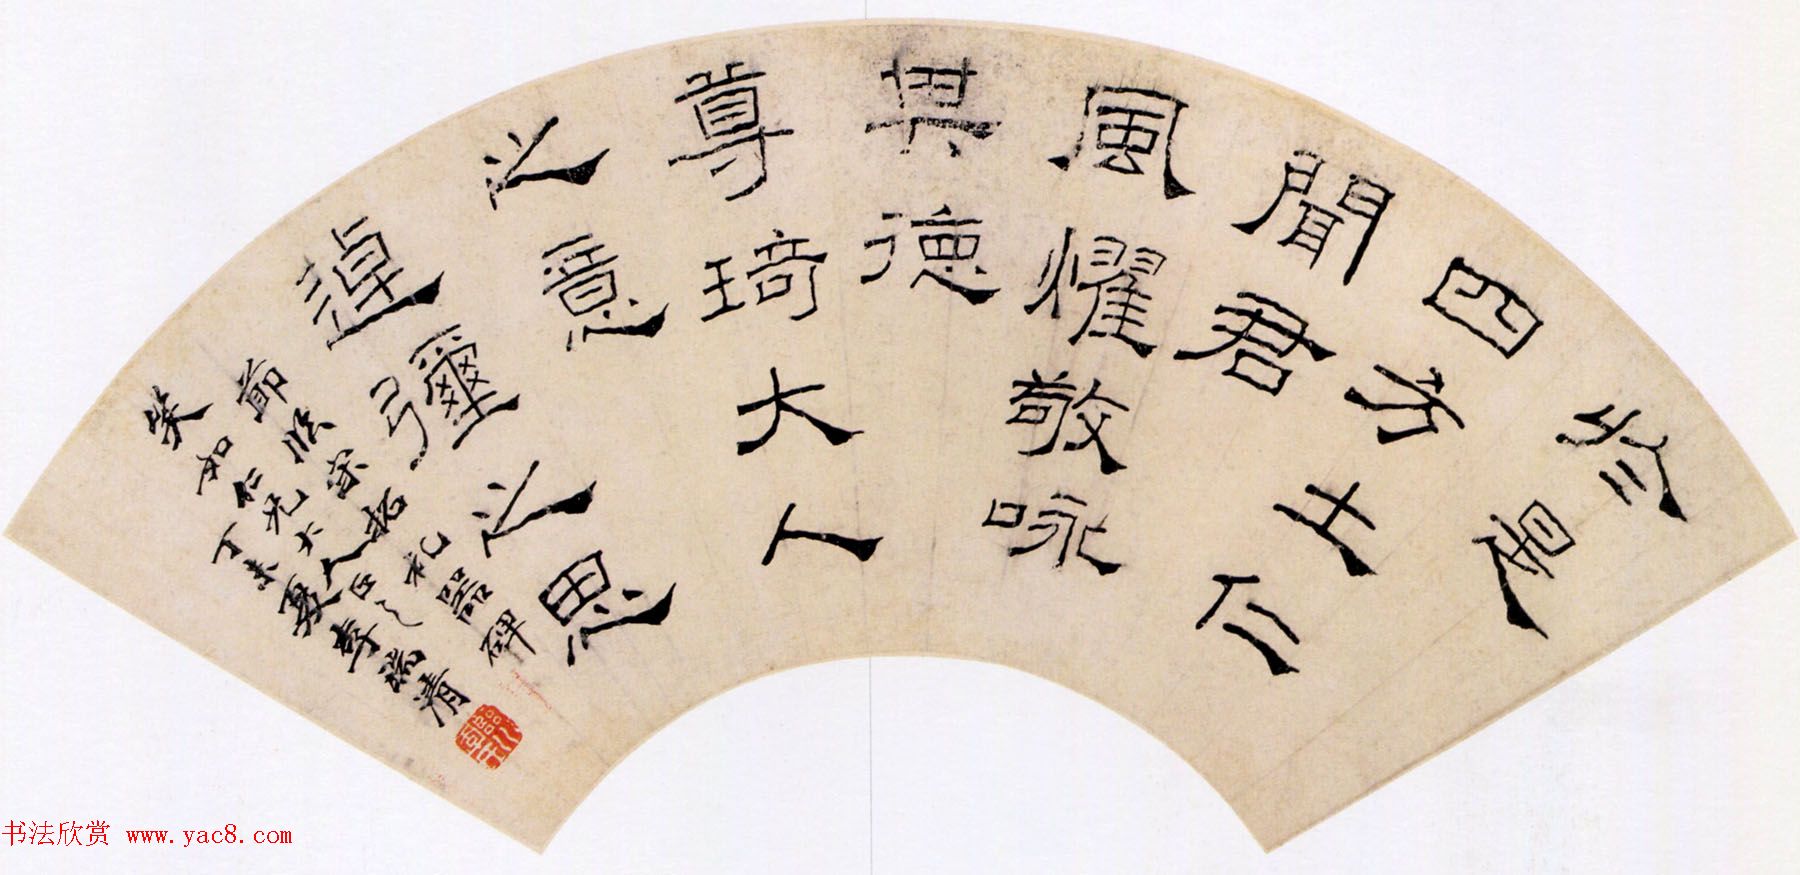 於是
四方士仁
聞君
風燿敬咏
其德
尊琦大人
之意
逴彌之思
節臨宋拓礼器碑
仁兄大人正之
丁未夏李瑞清
书法欣赏 www.yac8.com